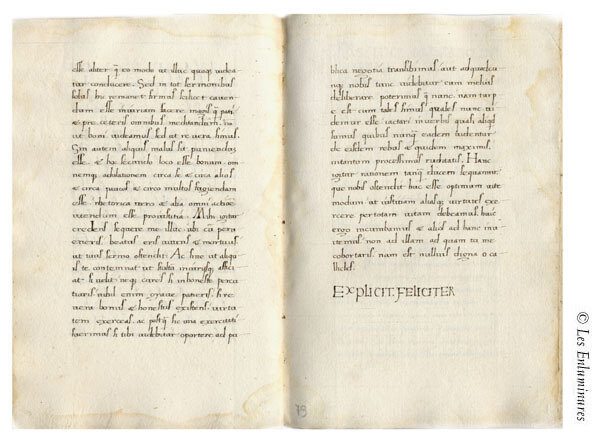 esse aliter q̄ eo modo ut illuc quoq; uidea
tur conducere. Sed in tot sermonibus
solus hic remanet firmus scilicet cauen
dum esse iniuriam facere magis q̄ pati
& pre ceteris omnibus meditandum. no
ut boni uideamur sed ut re uera simus.
Sin autem aliquis malus sit puniendus
esse. & hoc secundo loco esse bonum. om
nemq; adulationem circa se & circa alios
& circa paucos & circa multos fugiendam
esse rhetorica uero & alia omni actione
utendum esse pro iustitia. Mihi igitur
credens sequere me illuc ubi cū perue
neris beatus eris uiuens & mortuus
ut tuus sermo ostendit. Ac sine ut aliqui
te contemnat ut stultū iniurijsq; affici
at. si uelit neq; cures si inhoneste percu
tiaris. nihil enim graue patieris. si re
uera bonus & honestus existens uirtu
tem exerceas. ac postq̄ sic una exercitati
fuerimus si tibi uidebitur oportere ad pu
blica negotia transibimus aut ad quæcu
nq; nobis tunc uidebitur. cum melius
deliberare poterimus q̄ nunc. nam turp
e est cum tales simus quales nunc ui
demur esse iactari in uerbis quasi aliqd
simus quibus nunq̄ eadem uidentur
de eisdem rebus & quidem maximis.
in tantum processimus ruditatis. Hanc
igitur rationem tanq̄ ducem sequamur
que nobis ostendit hunc esse optimum uite
modum. ut iustitiam aliasq; uirtutes ex
ercere per totam uitam debeamus. huic
ergo incumbamus & alios ad hanc inui
temus. non ad illam ad quam tu me
cohortaris. nam est nullius digna o ca
llicles.
EXPLICIT. FELICITER
75
© Les Enluminures